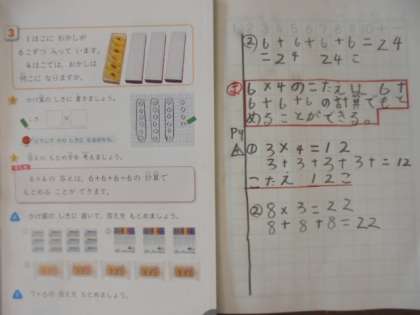 3
1はこに おかしが
6こずつ 入って います。
4はこでは、おかしは
何こに なりますか。
かけ算の しきに 書きましょう。
しき
答えの もとめ方を 考えましょう。
6×4の 答えは、6+6+6+6の 計算で
もとめる ことが できます。
かけ算の しきに 書いて、答えを もとめましょう。
7×6の 答えを もとめましょう。
② 6+6+6+6=24
=24 24こ
6×4のこたえは 6+
6+6+6の計算でもと
めることができる。
P4
① 3×4=12
3+3+3+3+=12
こたえ 12こ
② 8×3=22
8+8+8=22